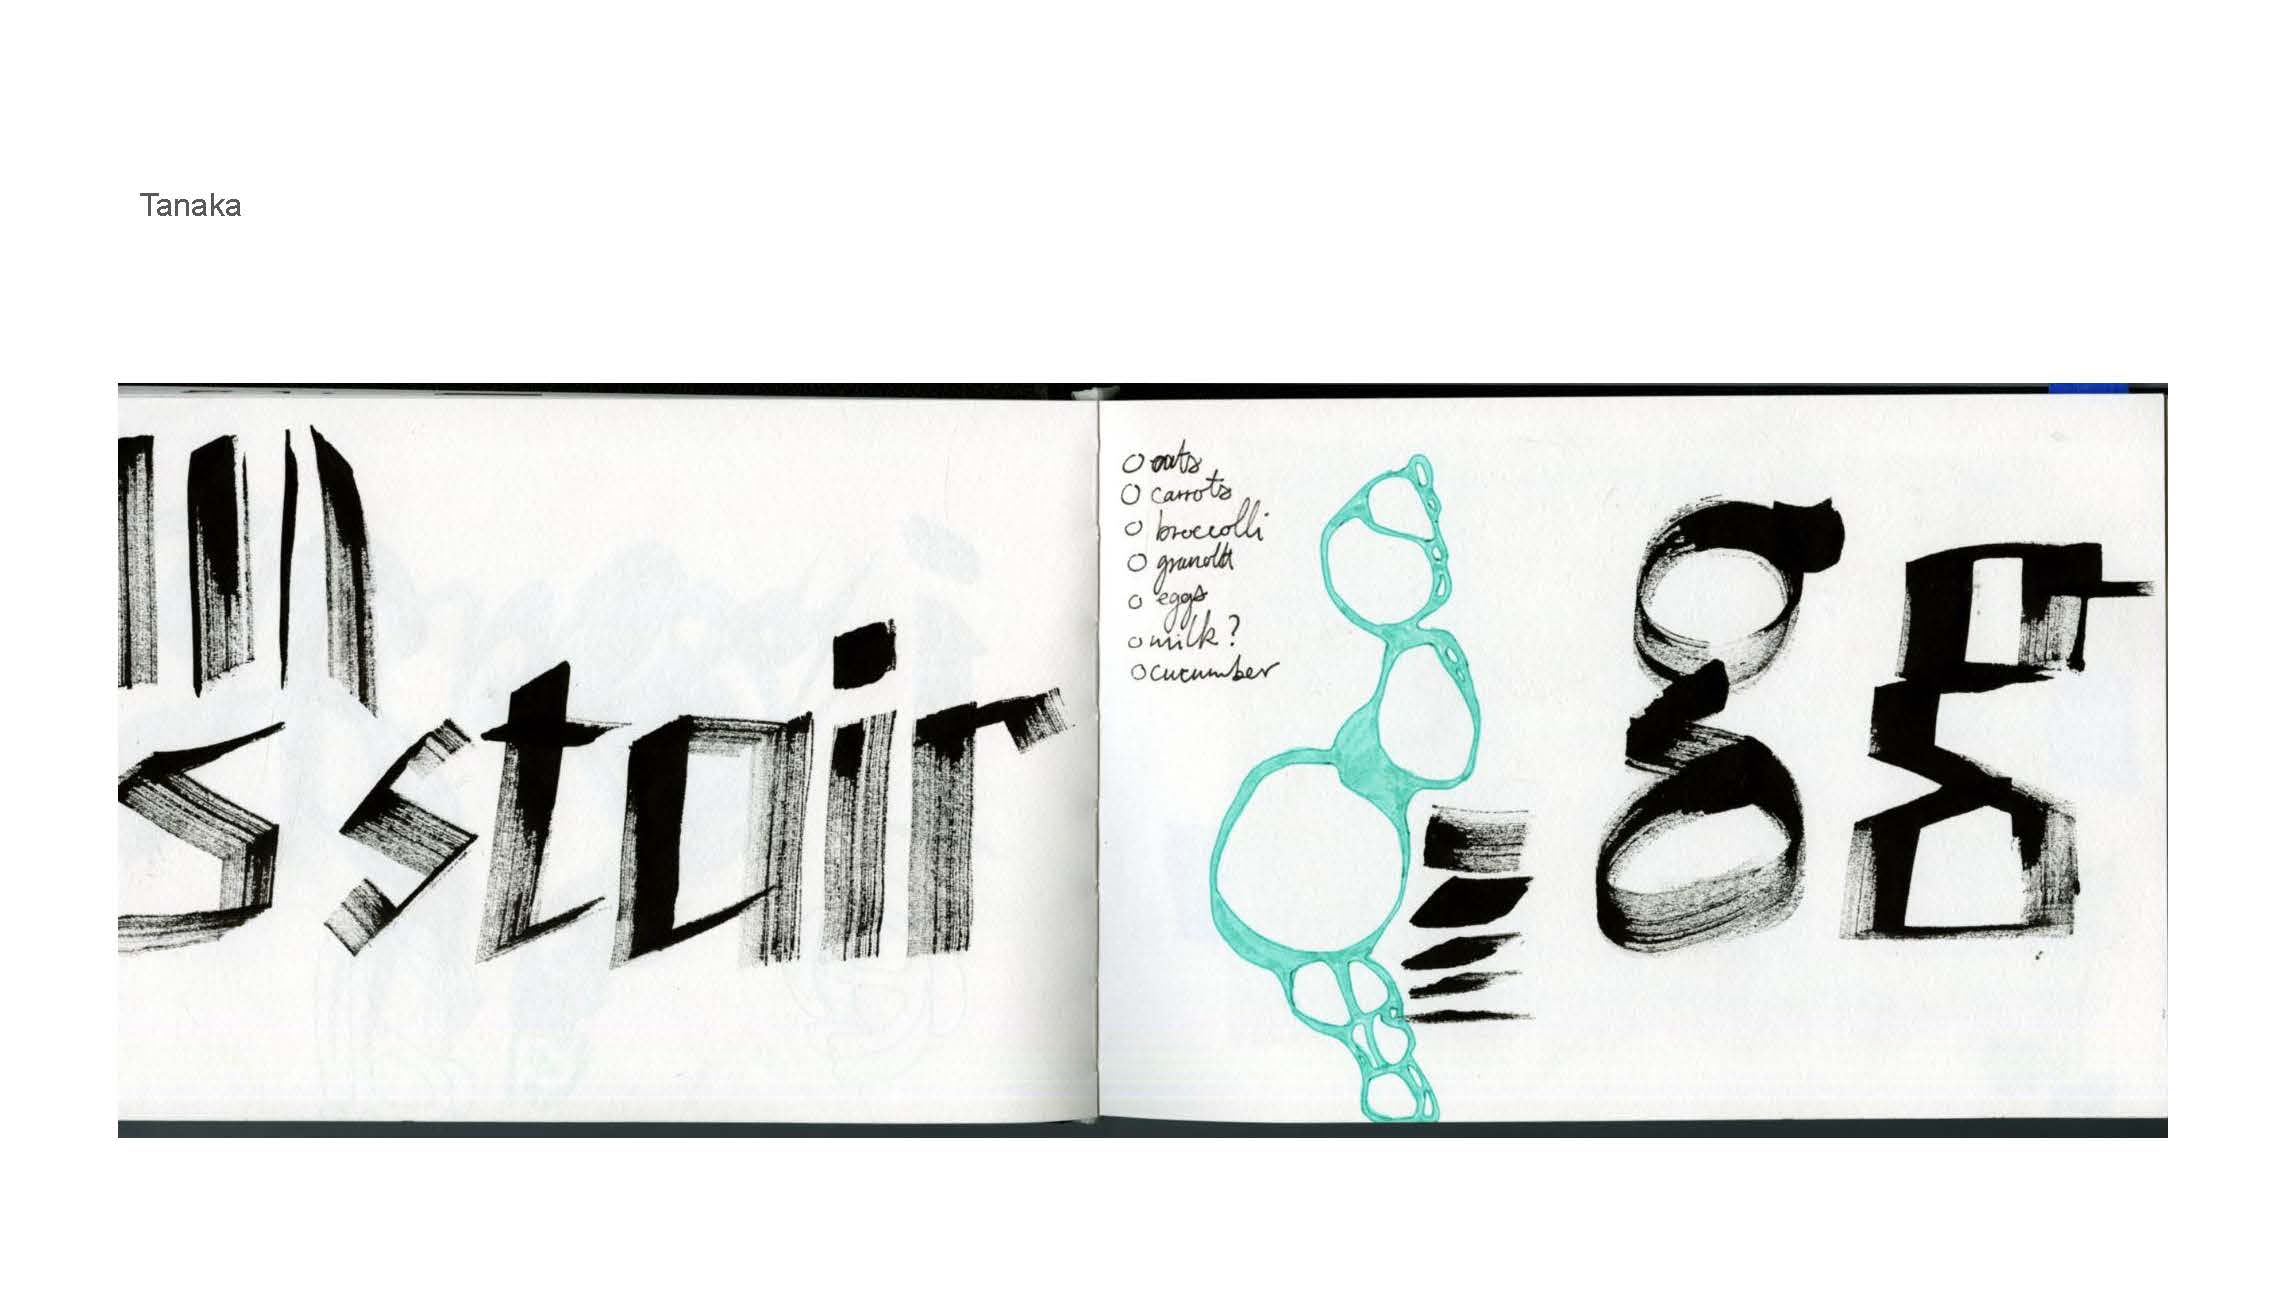 Tanaka
s stair
oats
carrots
broccolli
granola
eggs
milk?
cucumber
g g